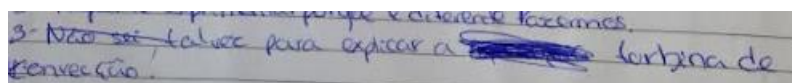 porque é diferente fazermos.
3- Não sei talvez para explicar a turbina de
convecção!